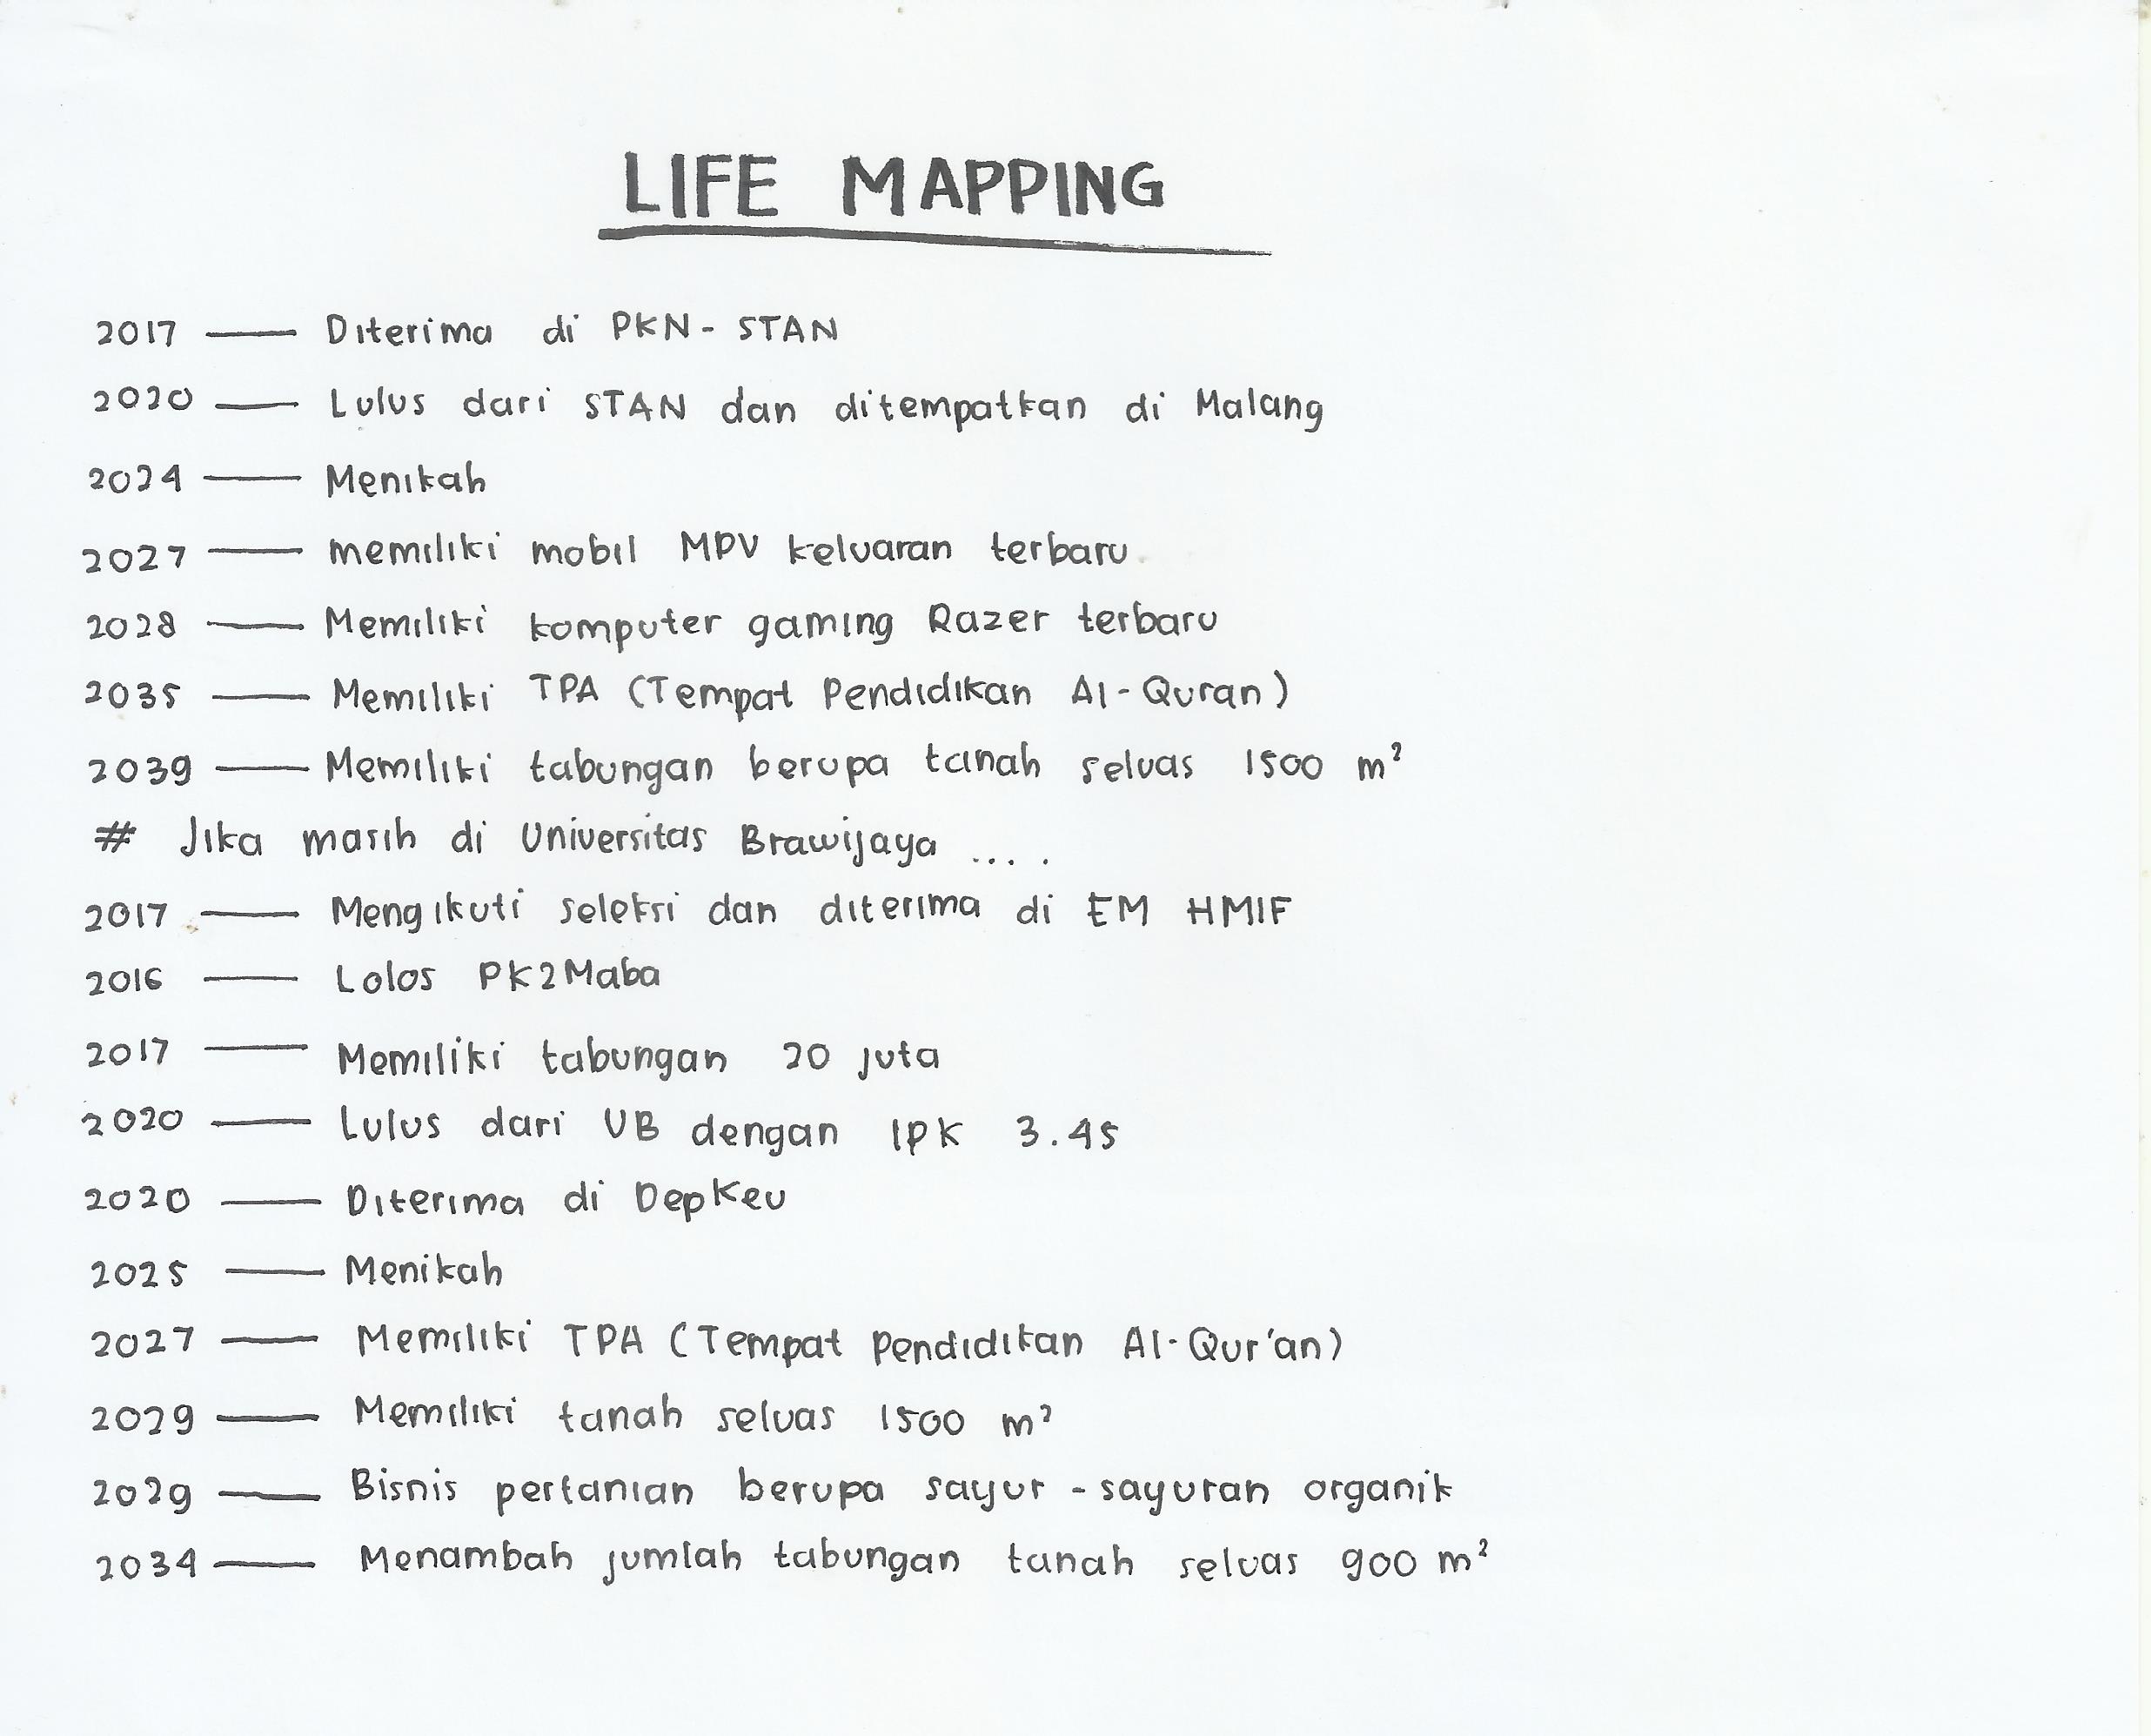 LIFE MAPPING
2017 —— Diterima di PKN-STAN
2020 —— Lulus dari STAN dan ditempatkan di Malang
2024 —— Menikah
2027 —— memiliki mobil MPV keluaran terbaru
2028 —— Memiliki komputer gaming Razer terbaru
2035 —— Memiliki TPA (Tempat Pendidikan Al-Quran)
2039 —— Memiliki tabungan berupa tanah seluas 1500 m²
# Jika masih di Universitas Brawijaya ... .
2017 —— Mengikuti seleksi dan diterima di EM HMIF
2016 —— Lolos PK2Maba
2017 —— Memiliki tabungan 20 juta
2020 —— Lulus dari UB dengan IPK 3.45
2020 —— Diterima di DepKeu
2025 —— Menikah
2027 —— Memiliki TPA (Tempat Pendidikan Al-Qur'an)
2029 —— Memiliki tanah seluas 1500 m²
2029 —— Bisnis pertanian berupa sayur-sayuran organik
2034 —— Menambah jumlah tabungan tanah seluas 900 m²